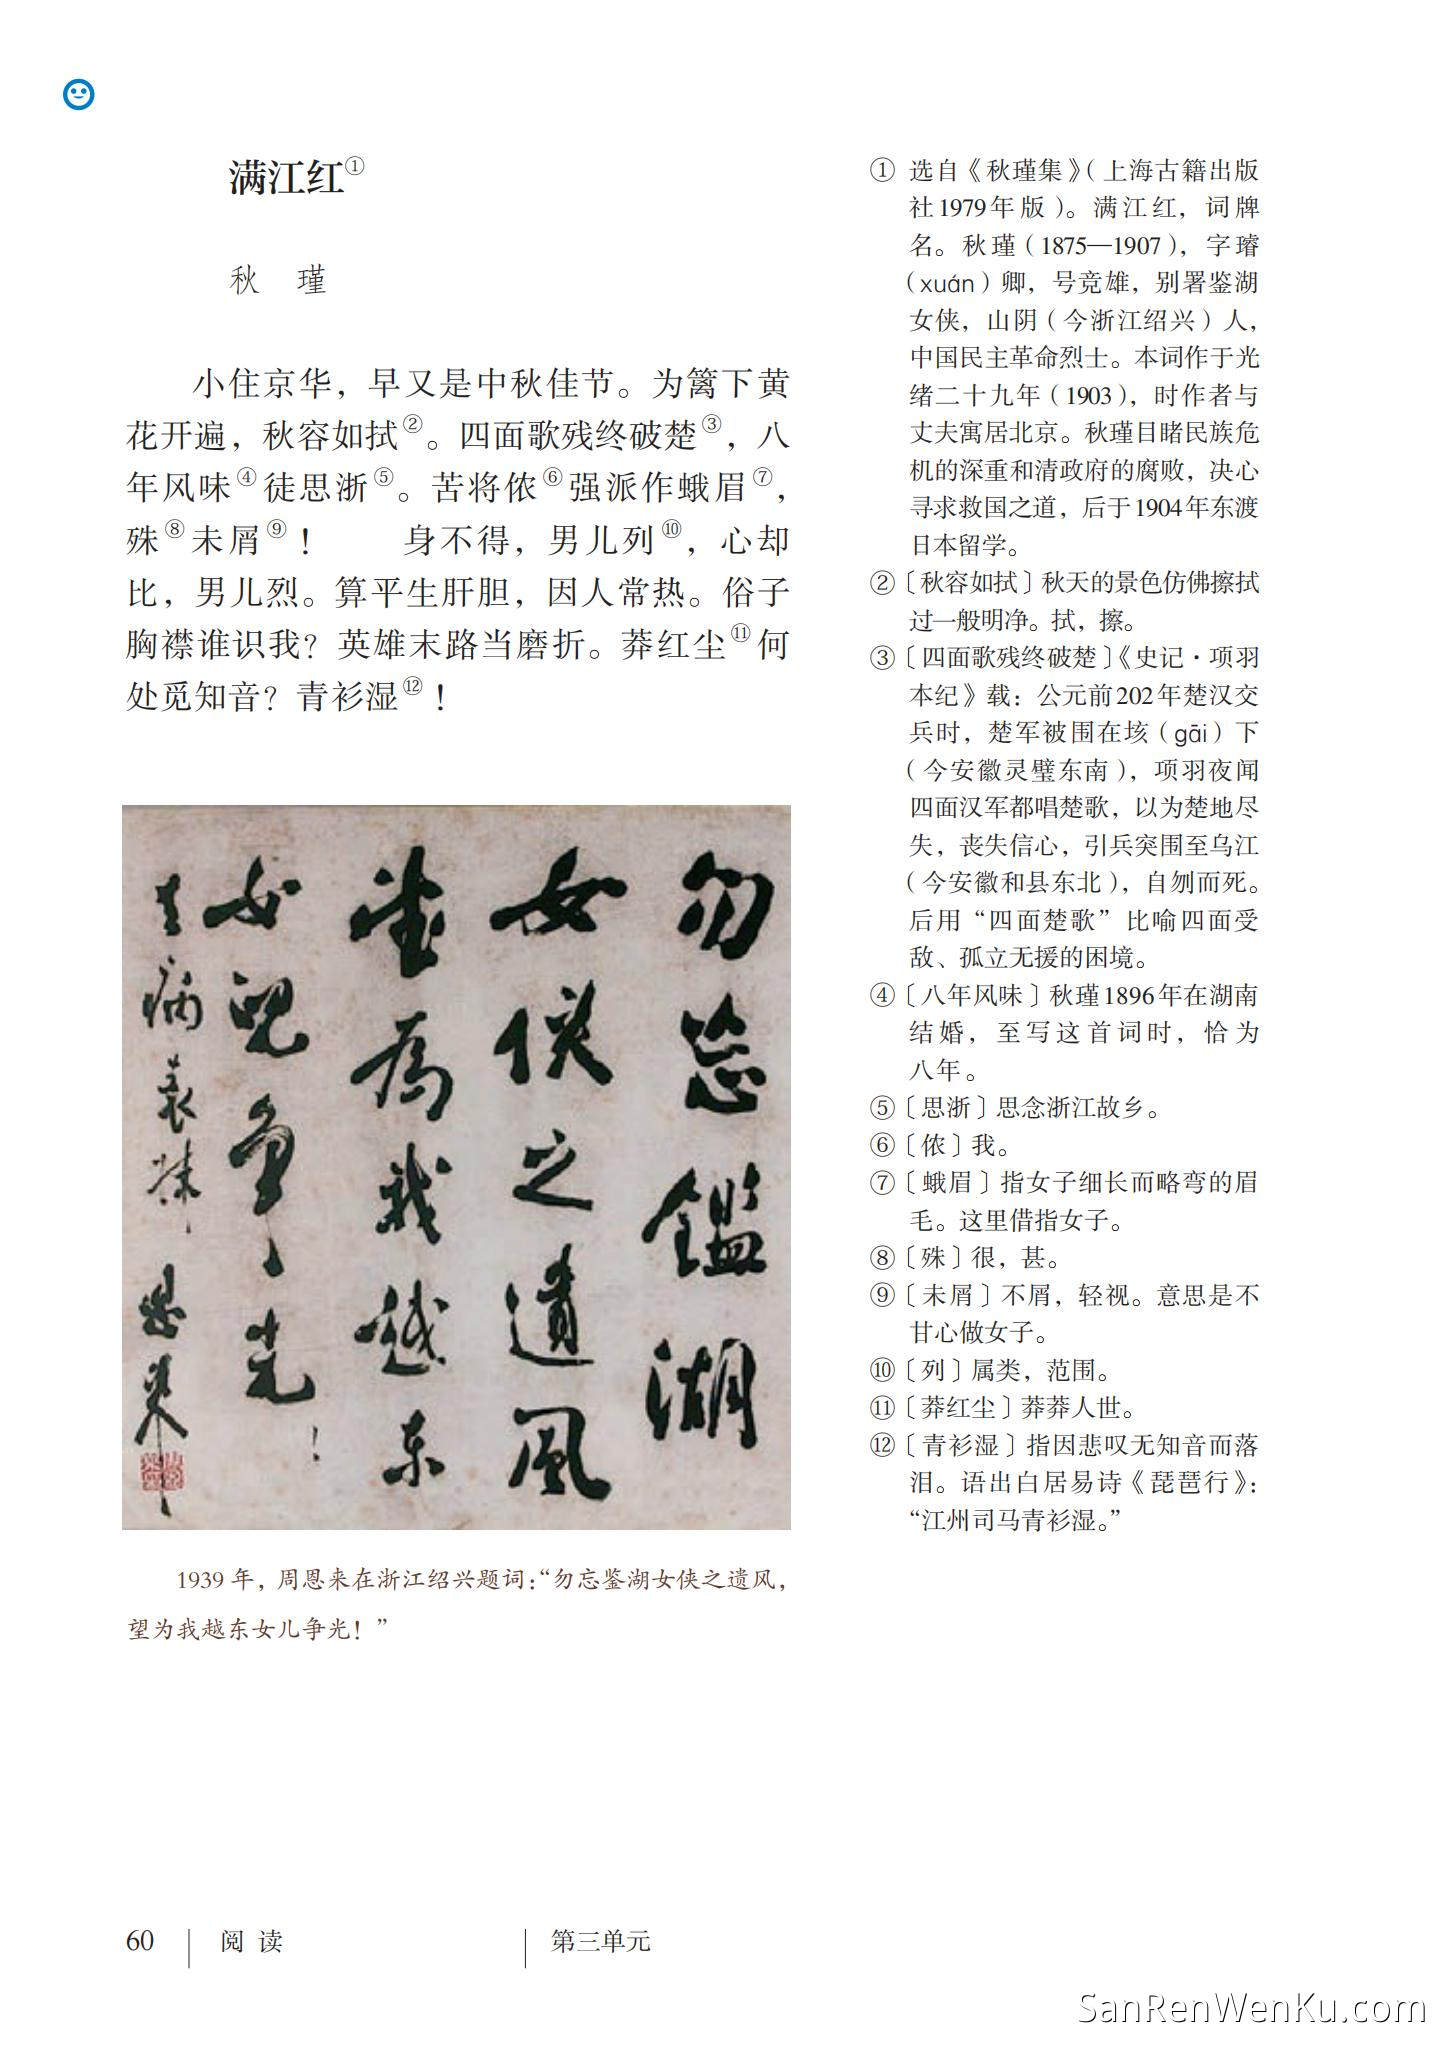 满江红①
秋 瑾
小住京华，早又是中秋佳节。为篱下黄
花开遍，秋容如拭②。四面歌残终破楚③，八
年风味④徒思浙⑤。苦将侬⑥强派作蛾眉⑦，
殊⑧未屑⑨！　　身不得，男儿列⑩，心却
比，男儿烈。算平生肝胆，因人常热。俗子
胸襟谁识我？英雄末路当磨折。莽红尘⑪何
处觅知音？青衫湿⑫！
勿忘鑑湖
女侠之遗风
望为我越东
女儿争光！
恩来
1939 年，周恩来在浙江绍兴题词：“勿忘鉴湖女侠之遗风，
望为我越东女儿争光！”
① 选自《秋瑾集》（上海古籍出版
社1979年版）。满江红，词牌
名。秋瑾（1875—1907），字璿
（xuán）卿，号竞雄，别署鉴湖
女侠，山阴（今浙江绍兴）人，
中国民主革命烈士。本词作于光
绪二十九年（1903），时作者与
丈夫寓居北京。秋瑾目睹民族危
机的深重和清政府的腐败，决心
寻求救国之道，后于1904年东渡
日本留学。
②〔秋容如拭〕秋天的景色仿佛擦拭
过一般明净。拭，擦。
③〔四面歌残终破楚〕《史记·项羽
本纪》载：公元前202年楚汉交
兵时，楚军被围在垓（gāi）下
（今安徽灵璧东南），项羽夜闻
四面汉军都唱楚歌，以为楚地尽
失，丧失信心，引兵突围至乌江
（今安徽和县东北），自刎而死。
后用“四面楚歌”比喻四面受
敌、孤立无援的困境。
④〔八年风味〕秋瑾1896年在湖南
结婚，至写这首词时，恰为
八年。
⑤〔思浙〕思念浙江故乡。
⑥〔侬〕我。
⑦〔蛾眉〕指女子细长而略弯的眉
毛。这里借指女子。
⑧〔殊〕很，甚。
⑨〔未屑〕不屑，轻视。意思是不
甘心做女子。
⑩〔列〕属类，范围。
⑪〔莽红尘〕莽莽人世。
⑫〔青衫湿〕指因悲叹无知音而落
泪。语出白居易诗《琵琶行》：
“江州司马青衫湿。”
60 阅 读 第三单元
SanRenWenKu.com